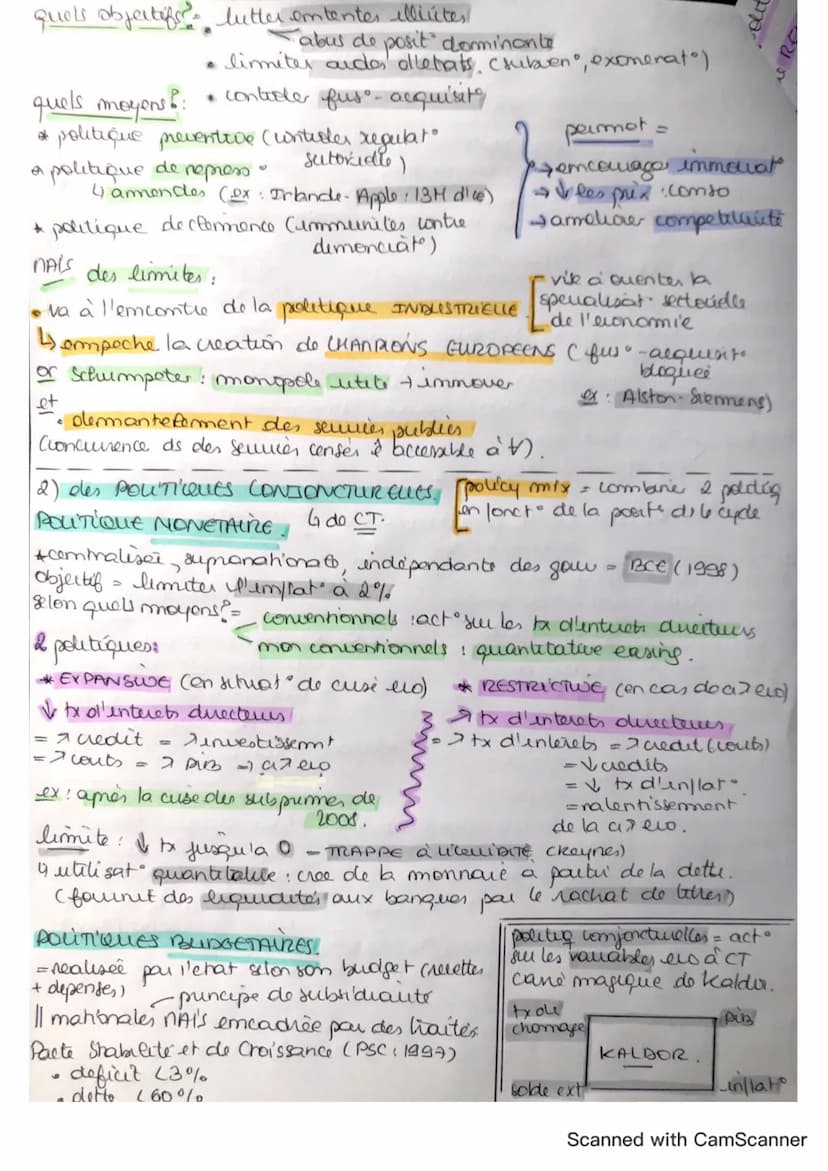 quels objectifs? = • lutter ententes illicites
abus de posit° dominante
• limiter aides d'états. (subven°, exonerat°)
quels moyens? : • controler fus°- acquisit°
* politique preventive (controler regulat°
sectorielle)
* politique de repress°
↳ amendes (ex : Irlande - Apple : 13M d'€)
* politique de clemence (immunités contre
denonciat°)
permet =
→ encourager innovat°
→ ↓ les prix : conso
→ améliorer compétitivité
MAIS des limites :
• va à l'encontre de la politique INDUSTRIELLE
vise à orienter la
specialisat° sectorielle
de l'economie
↳ empeche la creation de CHAMPIONS EUROPEENS (fus°-acquisit°
bloquée
or Schumpeter : monopole utile → innover
ex : Alstom-Siemens)
et
• demantellement des services publics
(concurrence ds des services censés ê accessible à ∀).
2) des POLITIQUES CONJONCTURELLES.
↳ de CT.
policy mix = combine 2 politiq
en fonct° de la posit° ds le cycle
POLITIQUE MONETAIRE.
* centralisée, supranationale, indépendante des gouv = BCE (1998)
objectif = limiter l'inflat° à 2%
selon quels moyens? = conventionnels : act° sur les tx d'interets directeurs
non conventionnels : quantitative easing.
2 politiques:
* EXPANSIVE (en situat° de crise eco)
↓ tx d'interets directeurs
= ↗ credit = ↗ investissemnt
= ↗ couts = ↗ PIB → c↗ eco
ex : après la crise des subprimes de
2008.
* RESTRICTIVE (en cas de c↗ eco)
↗ tx d'interets directeurs
= ↗ tx d'intérets = ↗ credit (couts)
= ↓ credits
= ↓ tx d'inflat°
= ralentissement
de la c↗ eco.
limite : ↓ tx jusqu'a 0 - TRAPPE à LIQUIDITÉ (keynes)
↳ utilisat° quantitative : cree de la monnaie a partir de la dette.
(fournit des liquidités aux banques par le rachat de titres)
POLITIQUES BUDGETAIRES.
= realisée par l'etat selon son budget (recettes
+ depenses) - principe de subsidiarité
|| nationales MAIS encadrée par des traités
Pacte Stabilité et de Croissance (PSC : 1997)
• deficit <3%
• dette <60%
politiq conjoncturelles = act°
sur les variables eco à CT
carré magique de Kaldor.
tx de
chomage
PIB
KALDOR.
solde ext
inflat°
Scanned with CamScanner